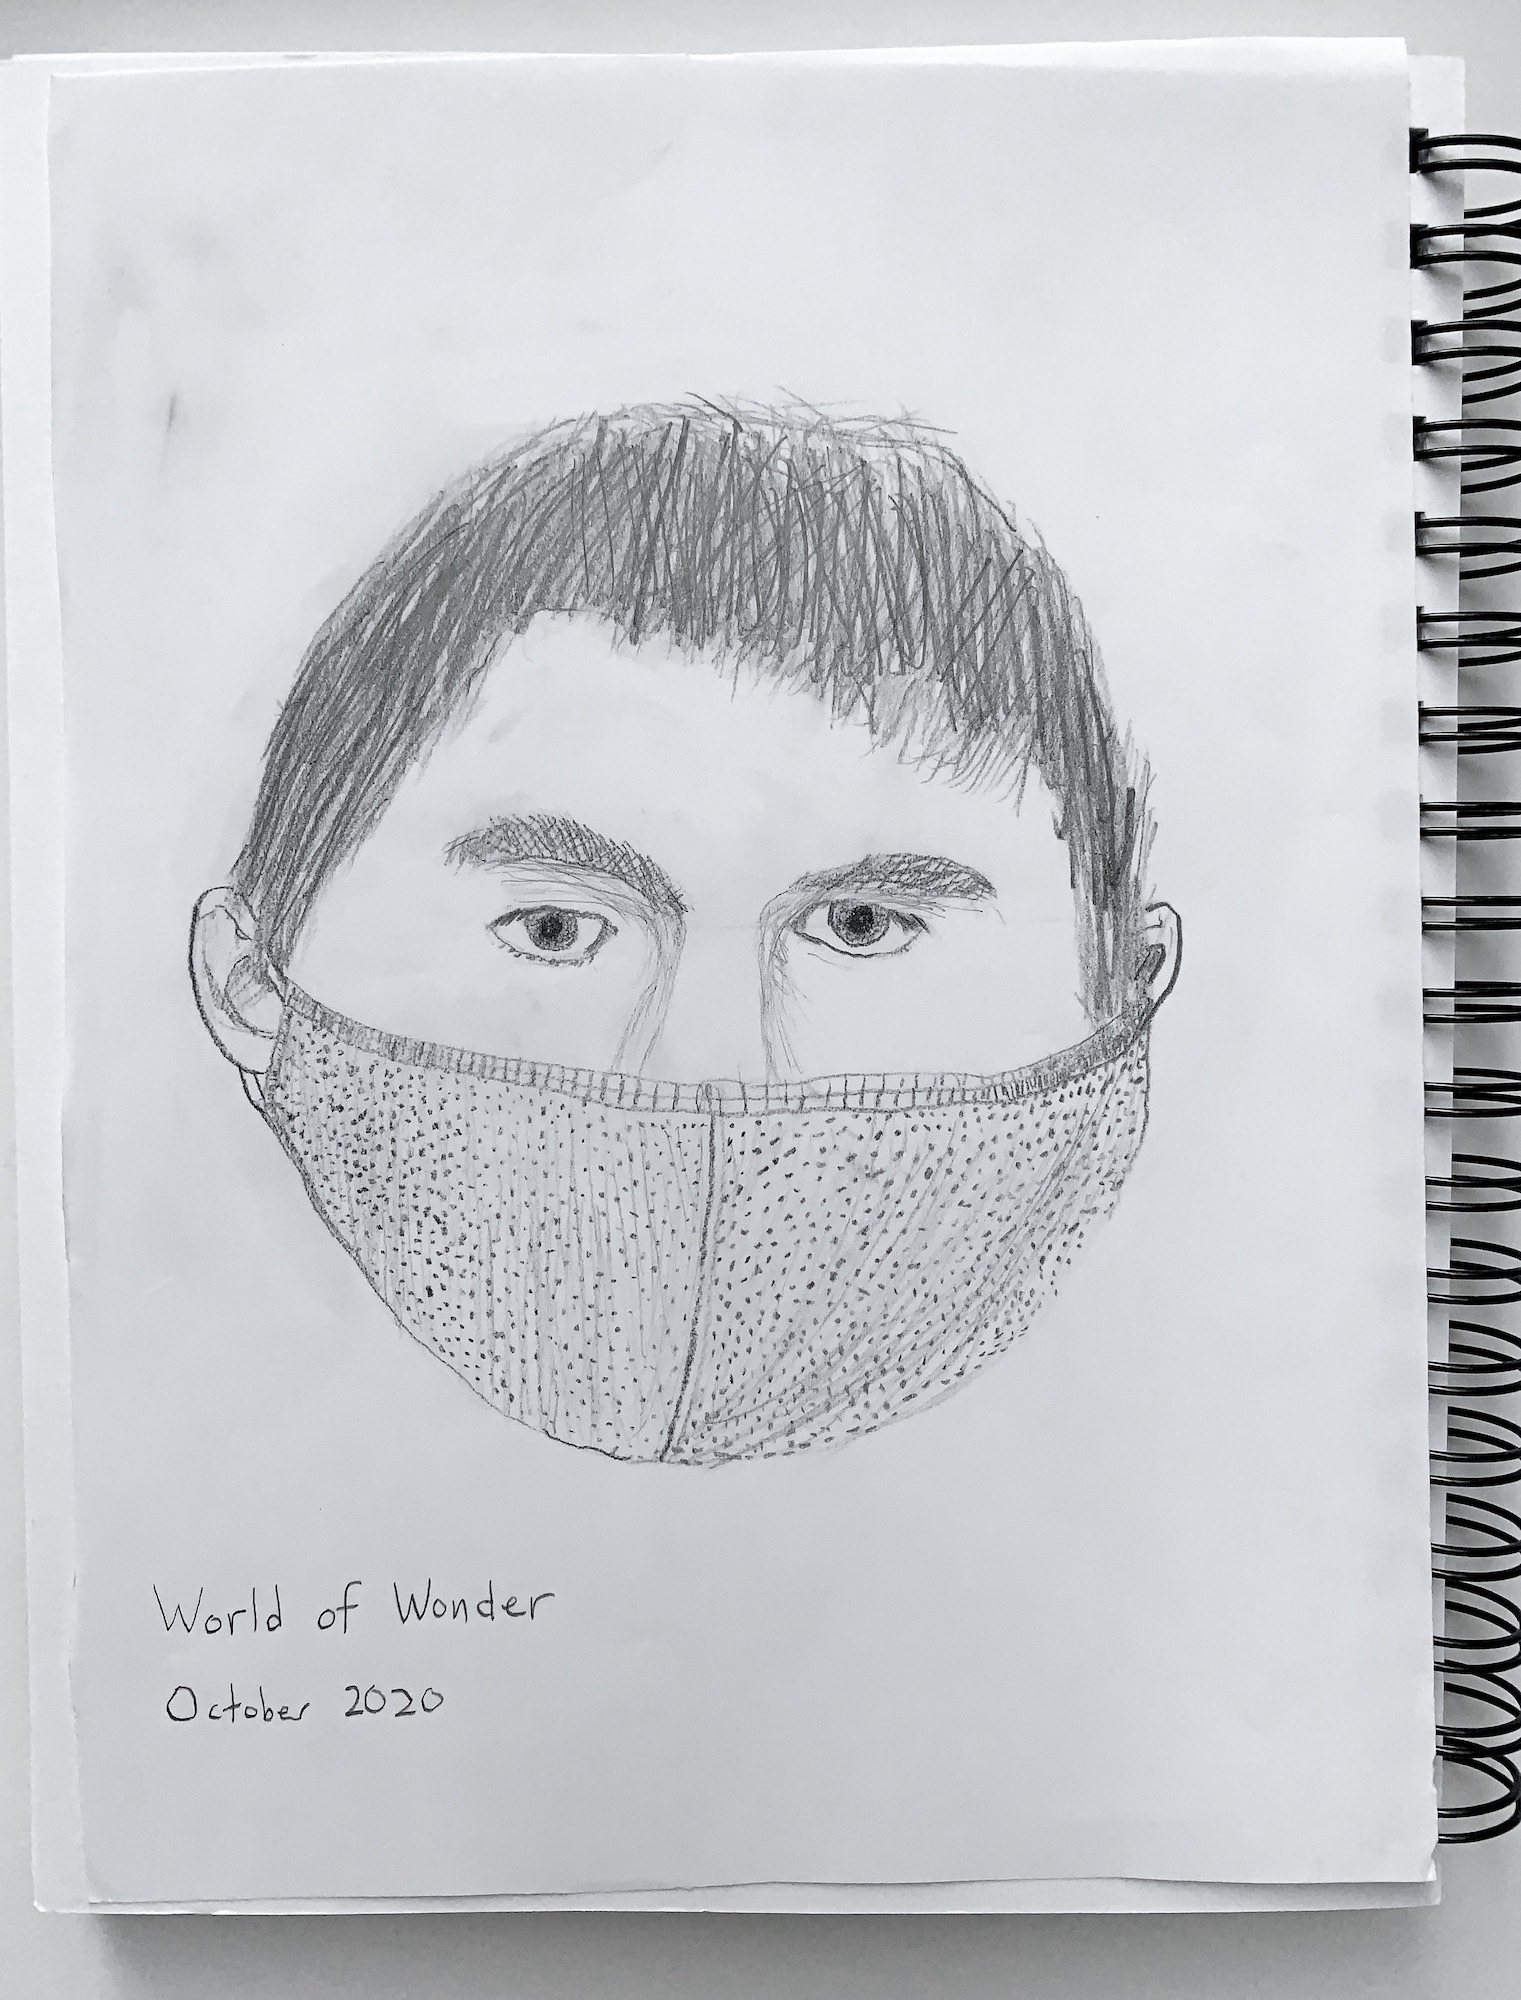 World of Wonder
October 2020